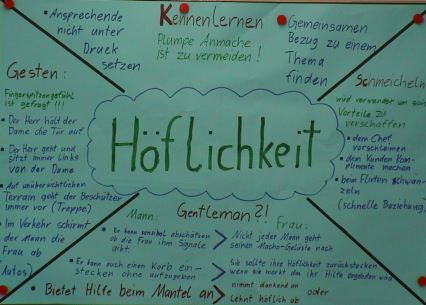 Kennenlernen
Plumpe Anmache
ist zu vermeiden!
• Ansprechende
nicht unter
Druck
setzen
Gemeinsamen
Bezug zu einem
Thema
finden
Gesten:
Fingerspitzengefühl
ist gefragt!!!
• Der Herr hält der
Dame die Tür auf
• Der Herr geht und
sitzt immer links
von der Dame
• Auf unübersichtlichen
Terrain geht der Beschützer
immer vor (Treppe)
• Im Verkehr schirmt
der Mann die
Frau ab
(Autos)
Schmeicheln
wird verwendet um sich
Vorteile zu
verschaffen
• dem Chef
vorschleimen
• dem Kunden Kom-
plimente machen
• beim Flirten schwän-
zeln
(schnelle Beziehung)
Höflichkeit
Gentleman?!
Mann:
Frau:
• Er kann sensibel abschätzen
ob die Frau ihm Signale
gibt
> Nicht jeder Mann geht
seinen Macho-Gelüsten nach
• Er kann auch einen Korb ein-
stecken ohne aufzugeben
> Sie sollte ihre Höflichkeit zurückstecken
wenn sie merkt das ihr Hilfe angeboten wird
• Bietet Hilfe beim Mantel an
> nimmt dankend an oder
Lehnt höflich ab